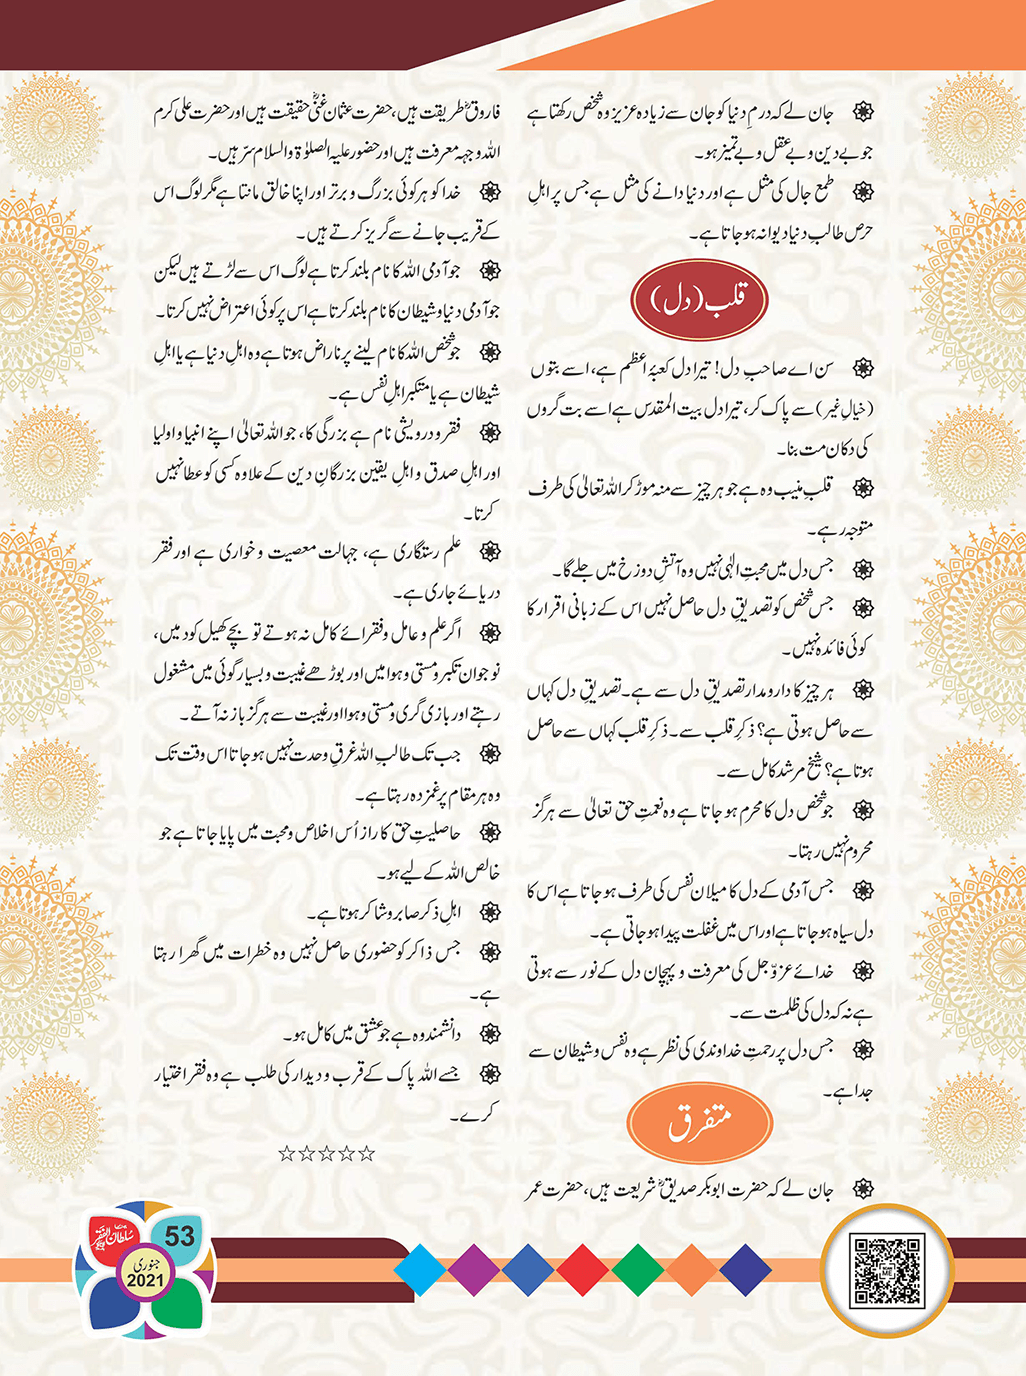 جان لے کہ درمِ دنیا کو جان سے زیادہ عزیز وہ شخص رکھتا ہے
جو بے دین و بے عقل و بے تمیز ہو۔
طمع جال کی مثل ہے اور دنیا دانے کی مثل ہے جس پر اہلِ
حرص طالبِ دنیا دیوانہ ہو جاتا ہے۔
قلب (دل)
سن اے صاحبِ دل! تیرا دل کعبۂ اعظم ہے، اسے بتوں
(خیالِ غیر) سے پاک کر، تیرا دل بیت المقدس ہے اسے بت گروں
کی دکان مت بنا۔
قلبِ منیب وہ ہے جو ہر چیز سے منہ موڑ کر اللہ تعالیٰ کی طرف
متوجہ رہے۔
جس دل میں محبتِ الٰہی نہیں وہ آتشِ دوزخ میں جلے گا۔
جس شخص کو تصدیقِ دل حاصل نہیں اس کے زبانی اقرار کا
کوئی فائدہ نہیں۔
ہر چیز کا دارومدار تصدیقِ دل سے ہے۔ تصدیقِ دل کہاں
سے حاصل ہوتی ہے؟ ذکرِ قلب سے۔ ذکرِ قلب کہاں سے حاصل
ہوتا ہے؟ شیخ مرشد کامل سے۔
جو شخص دل کا محرم ہو جاتا ہے وہ نعمتِ حق تعالیٰ سے ہرگز
محروم نہیں رہتا۔
جس آدمی کے دل کا میلان نفس کی طرف ہو جاتا ہے اس کا
دل سیاہ ہو جاتا ہے اور اس میں غفلت پیدا ہو جاتی ہے۔
خدائے عزّوجل کی معرفت و پہچان دل کے نور سے ہوتی
ہے نہ کہ دل کی ظلمت سے۔
جس دل پر رحمتِ خداوندی کی نظر ہے وہ نفس و شیطان سے
جدا ہے۔
متفرق
جان لے کہ حضرت ابوبکر صدیقؓ شریعت ہیں، حضرت عمر
فاروقؓ طریقت ہیں، حضرت عثمان غنیؓ حقیقت ہیں اور حضرت علی کرم
اللہ وجہہ معرفت ہیں اور حضور علیہ الصلوٰۃ والسلام سرّ ہیں۔
خدا کو ہر کوئی بزرگ و برتر اور اپنا خالق مانتا ہے مگر لوگ اس
کے قریب جانے سے گریز کرتے ہیں۔
جو آدمی اللہ کا نام بلند کرتا ہے لوگ اس سے لڑتے ہیں لیکن
جو آدمی دنیا و شیطان کا نام بلند کرتا ہے اس پر کوئی اعتراض نہیں کرتا۔
جو شخص اللہ کا نام لینے پر ناراض ہوتا ہے وہ اہلِ دنیا ہے یا اہلِ
شیطان ہے یا متکبر اہلِ نفس ہے۔
فقر و درویشی نام ہے بزرگی کا، جو اللہ تعالیٰ اپنے انبیا و اولیا
اور اہلِ صدق و اہلِ یقین بزرگانِ دین کے علاوہ کسی کو عطا نہیں
کرتا۔
علم رستگاری ہے، جہالت معصیت و خواری ہے اور فقر
دریائے جاری ہے۔
اگر علم و عامل و فقرائے کامل نہ ہوتے تو بچے کھیل کود میں،
نوجوان تکبر و مستی و ہوا میں اور بوڑھے غیبت و بسیار گوئی میں مشغول
رہتے اور بازی گری و مستی و ہوا اور غیبت سے ہرگز باز نہ آتے۔
جب تک طالبِ اللہ غرقِ وحدت نہیں ہو جاتا اس وقت تک
وہ ہر مقام پر غمزدہ رہتا ہے۔
حاصلیتِ حق کا راز اُس اخلاص و محبت میں پایا جاتا ہے جو
خالص اللہ کے لیے ہو۔
اہلِ ذکر صابر و شاکر ہوتا ہے۔
جس ذاکر کو حضوری حاصل نہیں وہ خطرات میں گھرا رہتا
ہے۔
دانشمند وہ ہے جو عشق میں کامل ہو۔
جسے اللہ پاک کے قرب و دیدار کی طلب ہے وہ فقر اختیار
کرے۔
☆☆☆☆☆
سلطان الفقر
53
جنوری
2021